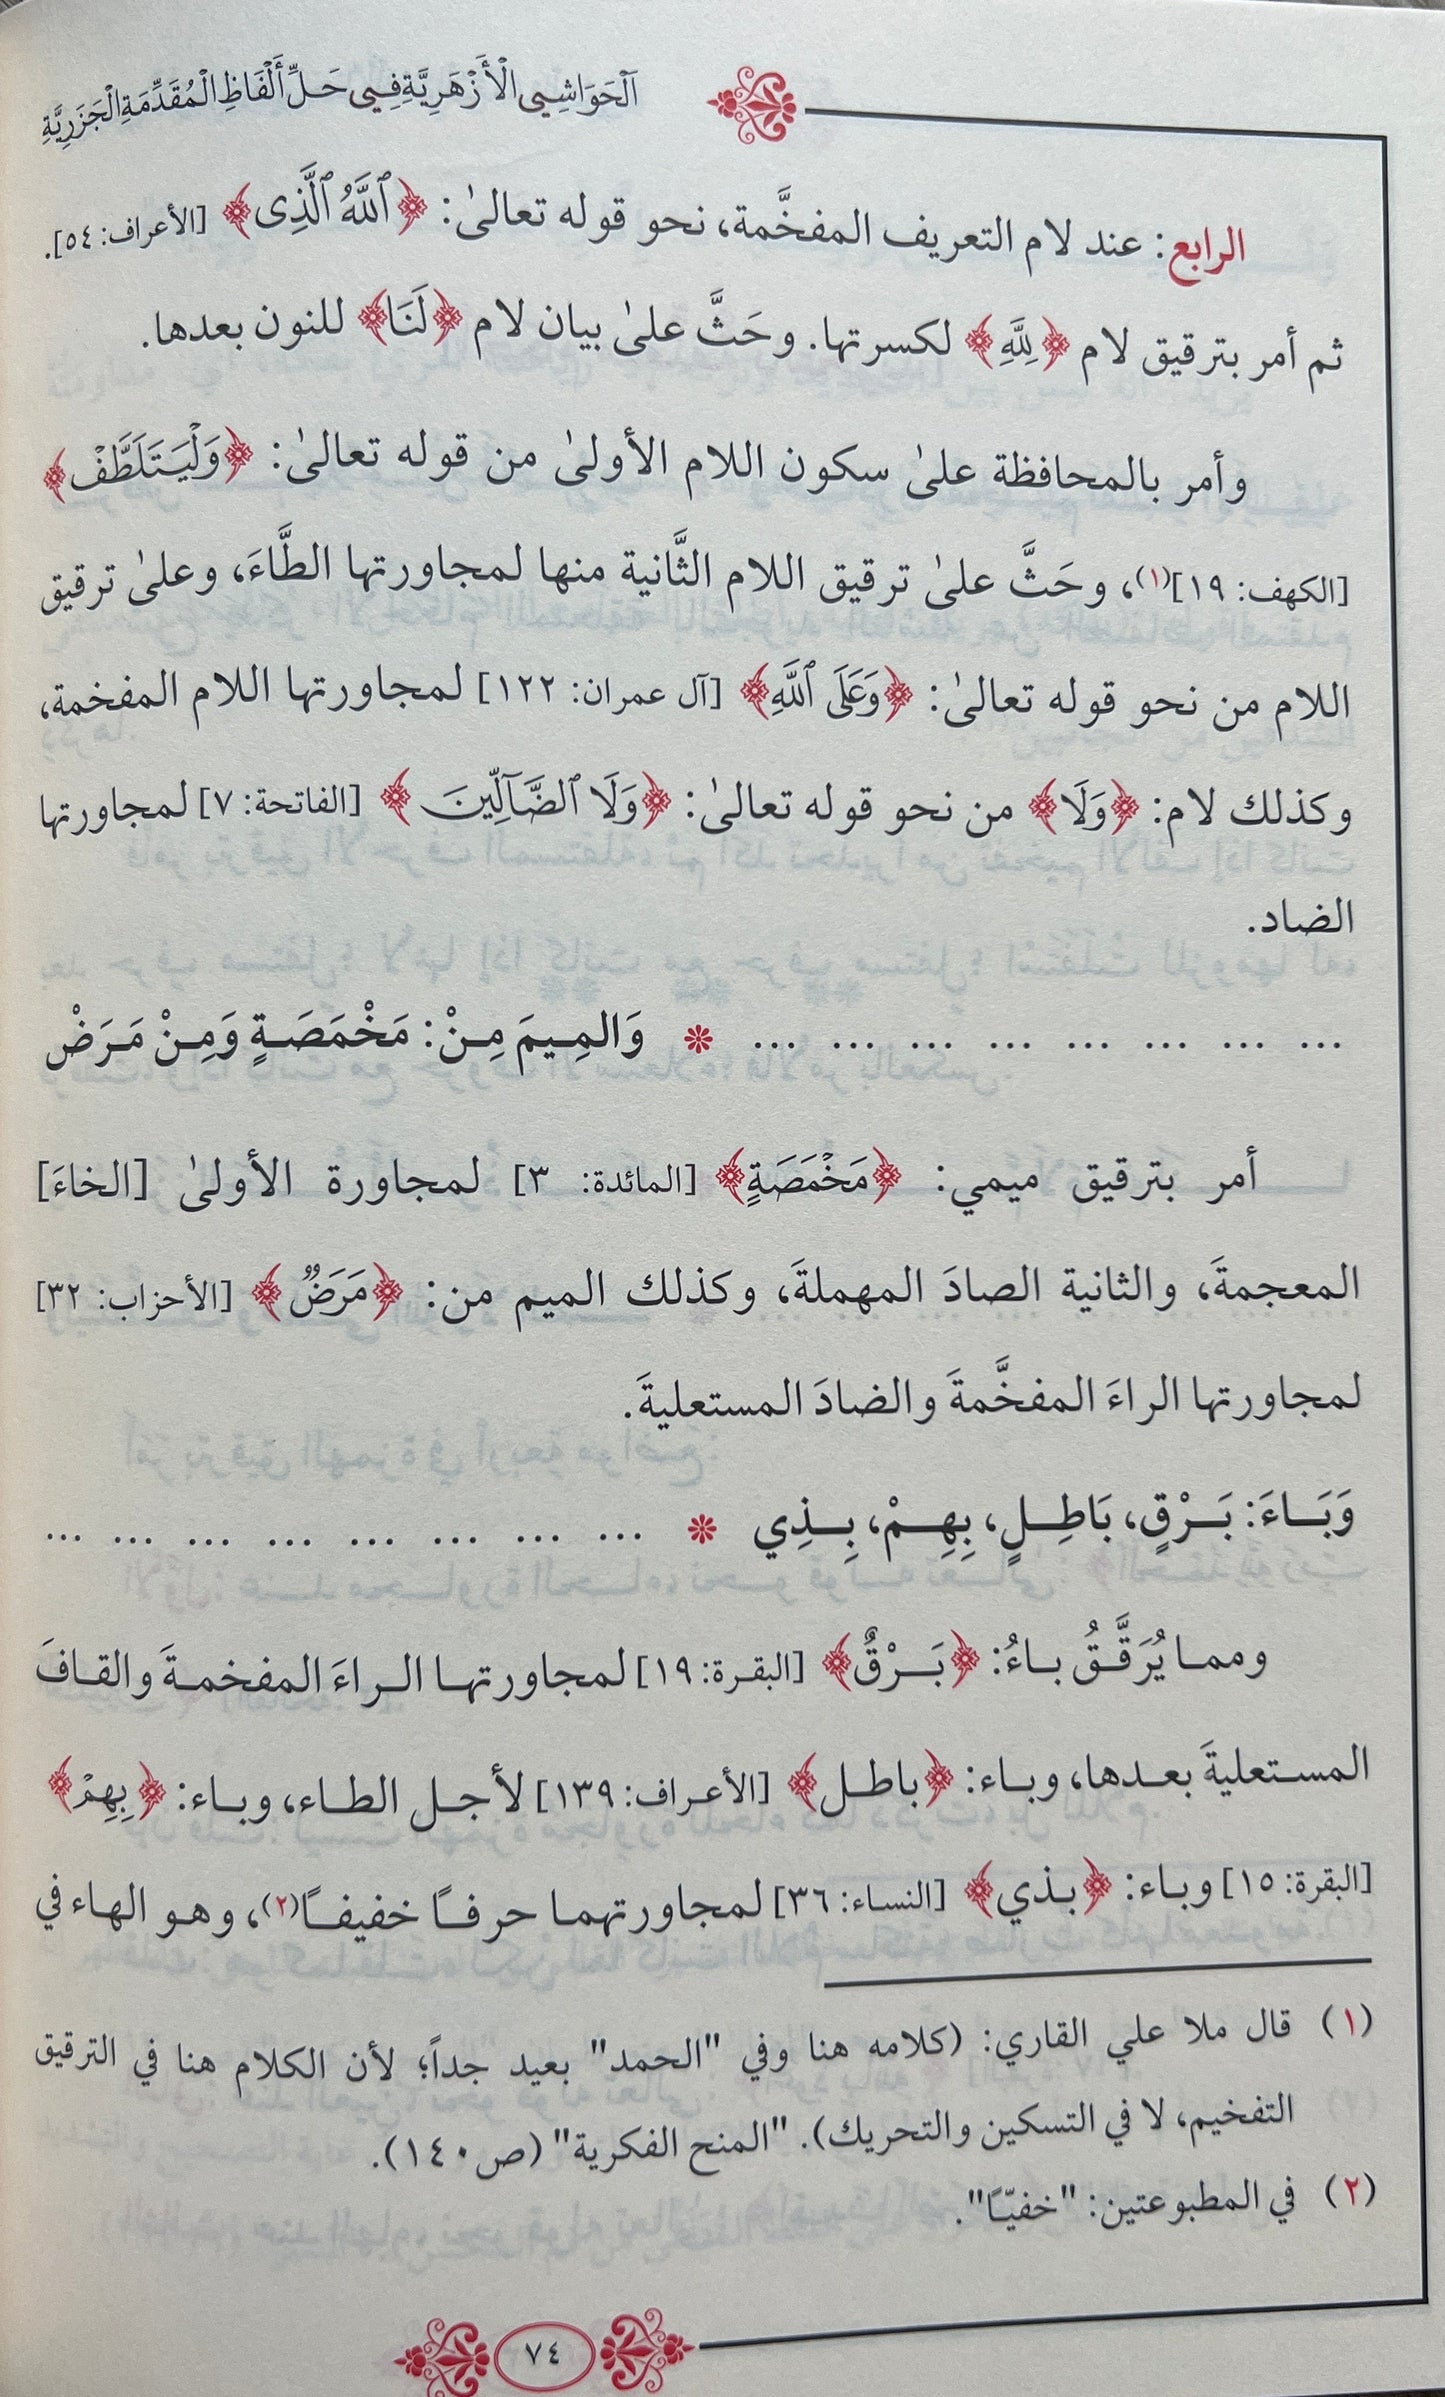 اَلْحَوَاشِي الْأَزْهَرِيَّةِ فِي حَلِّ أَلْفَاظِ الْمُقَدِّمَةِ الْجَزَرِيَّةِ
الرابع: عند لام التعريف المفخَّمة، نحو قوله تعالىٰ: ﴿ٱللَّهُ ٱلَّذِى﴾ [الأعراف: ٥٤].
ثم أمر بترقيق لام ﴿لِلَّهِ﴾ لكسرتها. وحَثَّ علىٰ بيان لام ﴿لَنَا﴾ للنون بعدها.
وأمر بالمحافظة علىٰ سكون اللام الأولىٰ من قوله تعالىٰ: ﴿وَلْيَتَلَطَّفْ﴾
[الكهف: ١٩](١)، وحَثَّ علىٰ ترقيق اللام الثَّانية منها لمجاورتها الطَّاءَ، وعلىٰ ترقيق
اللام من نحو قوله تعالىٰ: ﴿وَعَلَى ٱللَّهِ﴾ [آل عمران: ١٢٢] لمجاورتها اللام المفخمة،
وكذلك لام: ﴿وَلَا﴾ من نحو قوله تعالىٰ: ﴿وَلَا ٱلضَّآلِّينَ﴾ [الفاتحة: ٧] لمجاورتها
الضاد.
... ... ... ... ... ... ... ... ❊ وَالمِيمَ مِنْ: مَخْمَصَةٍ وَمِنْ مَرَضْ
أمر بترقيق ميمي: ﴿مَخْمَصَةٍ﴾ [المائدة: ٣] لمجاورة الأولىٰ [الخاءَ]
المعجمةَ، والثانية الصادَ المهملةَ، وكذلك الميم من: ﴿مَرَضٌ﴾ [الأحزاب: ٣٢]
لمجاورتها الراءَ المفخَّمةَ والضادَ المستعليةَ.
وَبَاءَ: بَرْقٍ، بَاطِلٍ، بِهِمْ، بِذِي ❊ ... ... ... ... ... ... ... ...
ومما يُرَقَّقُ باءُ: ﴿بَرْقٌ﴾ [البقرة: ١٩] لمجاورتها الراءَ المفخمةَ والقافَ
المستعليةَ بعدها، وباء: ﴿باطل﴾ [الأعراف: ١٣٩] لأجل الطاء، وباء: ﴿بِهِمْ﴾
[البقرة: ١٥] وباء: ﴿بذي﴾ [النساء: ٣٦] لمجاورتهما حرفًا خفيفًا(٢)، وهو الهاء في
(١) قال ملا علي القاري: (كلامه هنا وفي "الحمد" بعيد جداً؛ لأن الكلام هنا في الترقيق
التفخيم، لا في التسكين والتحريك). "المنح الفكرية" (ص١٤٠).
(٢) في المطبوعتين: "خفيّا".
٧٤